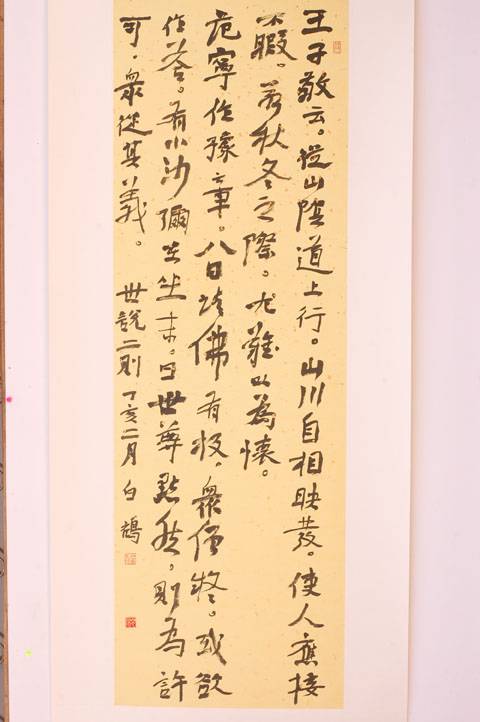 王子敬云。從山陰道上行。山川自相映發。使人應接
不暇。若秋冬之際。尤難以為懷。
范寧作豫章。八日請佛有板。眾僧疑。或欲
作答。有小沙彌在坐末。曰世尊默然。則為許
可。眾從其義。 世說二則 丁亥二月 白